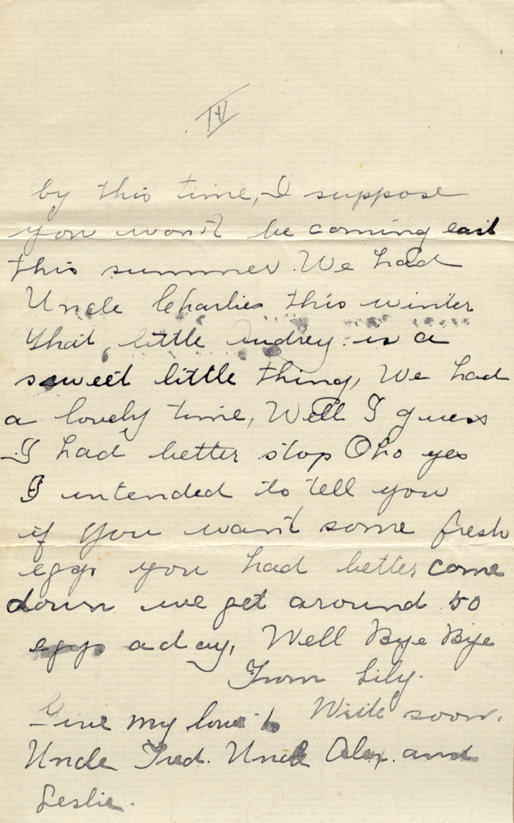 IV
by this time, I suppose
you won't be coming east
this summer. We had
Uncle Charlies this winter
that little Audrey is a
sweet little thing, We had
a lovely time, Well I guess
I had better stop Oho yes
I intended to tell you
if you want some fresh
eggs you had better come
down we get around 50
eggs a day, Well Bye Bye
From Lily.
Give my love to Write soon.
Uncle Fred. Uncle Alex. and
Leslie.